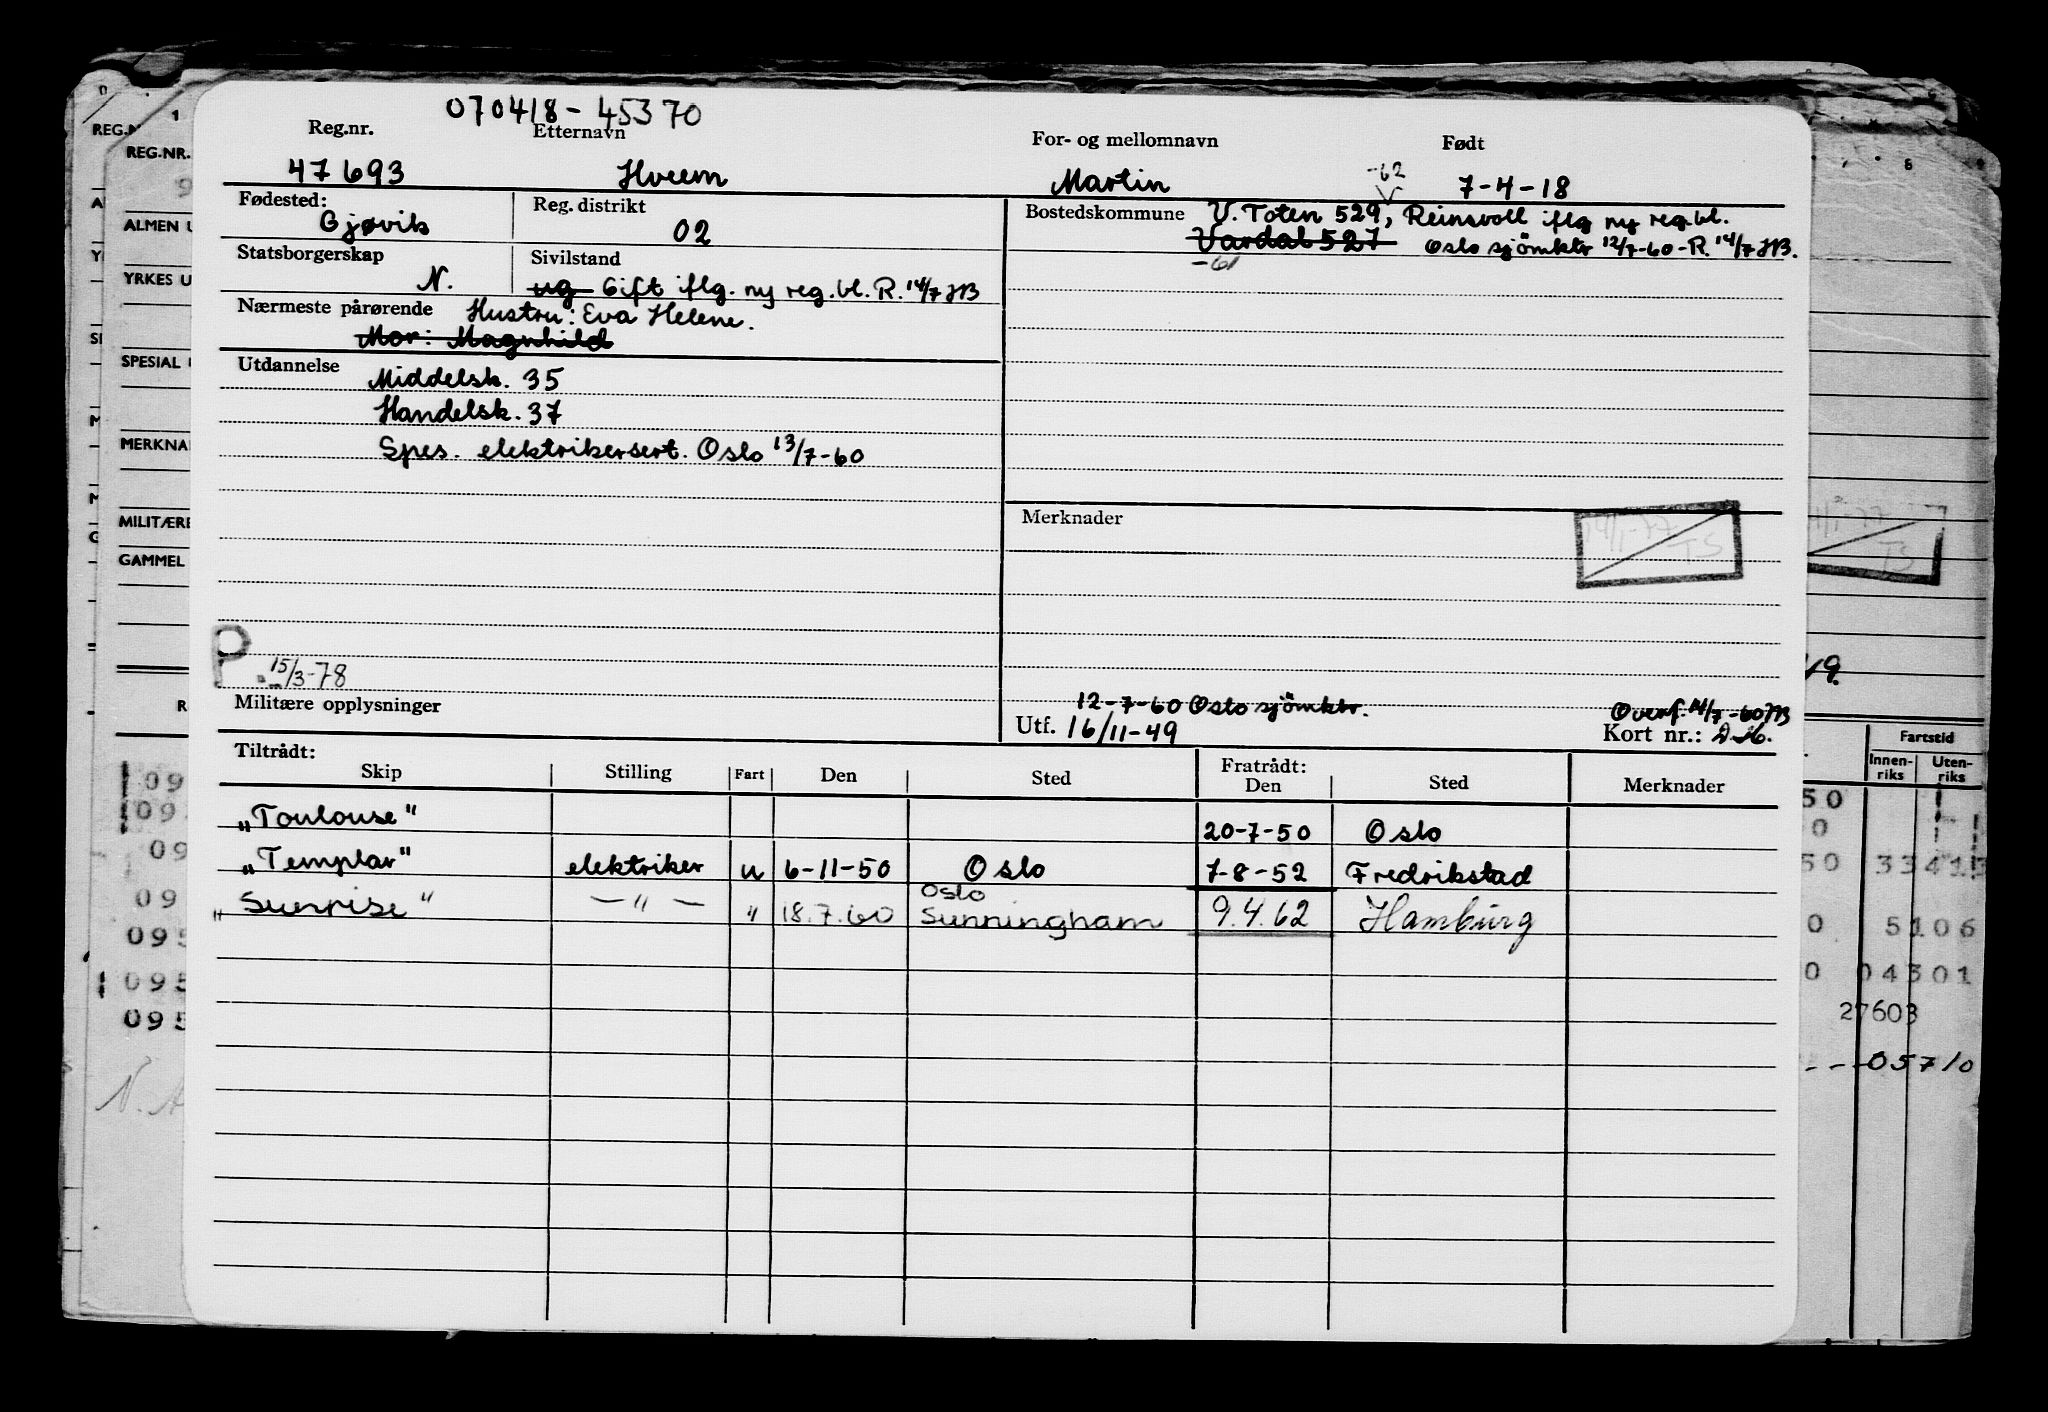 070418-45370
Reg.nr. Etternavn For- og mellomnavn Født
47693 Hveem Martin 7-4-18
-62
Fødested: Gjøvik Reg. distrikt 02
Bostedskommune V. Toten 529, Reinsvoll iflg ny reg.bl.
Vardal 527 Oslo sjömktr 12/7-60-R. 14/7 HB.
-61
Statsborgerskap N. Sivilstand
ug Gift iflg. ny reg.bl. R. 14/7 HB
Nærmeste pårørende Hustru: Eva Helene.
Mor: Magnhild
Utdannelse Middelsk. 35
Handelsk. 37
Spes. elektrikersert. Oslo 13/7-60
Merknader
14/1-77
TS
P. 15/3-78
Militære opplysninger
12-7-60 Oslo sjömktr.
Utf. 16/11-49
Overf. 14/7-60 HB
Kort nr.:
Tiltrådt: Fratrådt:
Skip Stilling Fart Den Sted Den Sted Merknader
"Toulouse" 20-7-50 Oslo
"Templar" elektriker u 6-11-50 Oslo 7-8-52 Fredrikstad
Oslo
"Sunrise" — " — " 18.7.60 Sunningham 9.4.62 Hamburg
REG.N
REG.NR.
ALMEN U
YRKES U
SPESIAL
MERKNA
MILITÆRE
GAMMEL
Fartstid
Innen-riks Uten-riks
50
50 33413
0 5106
0 04301
27603
05710